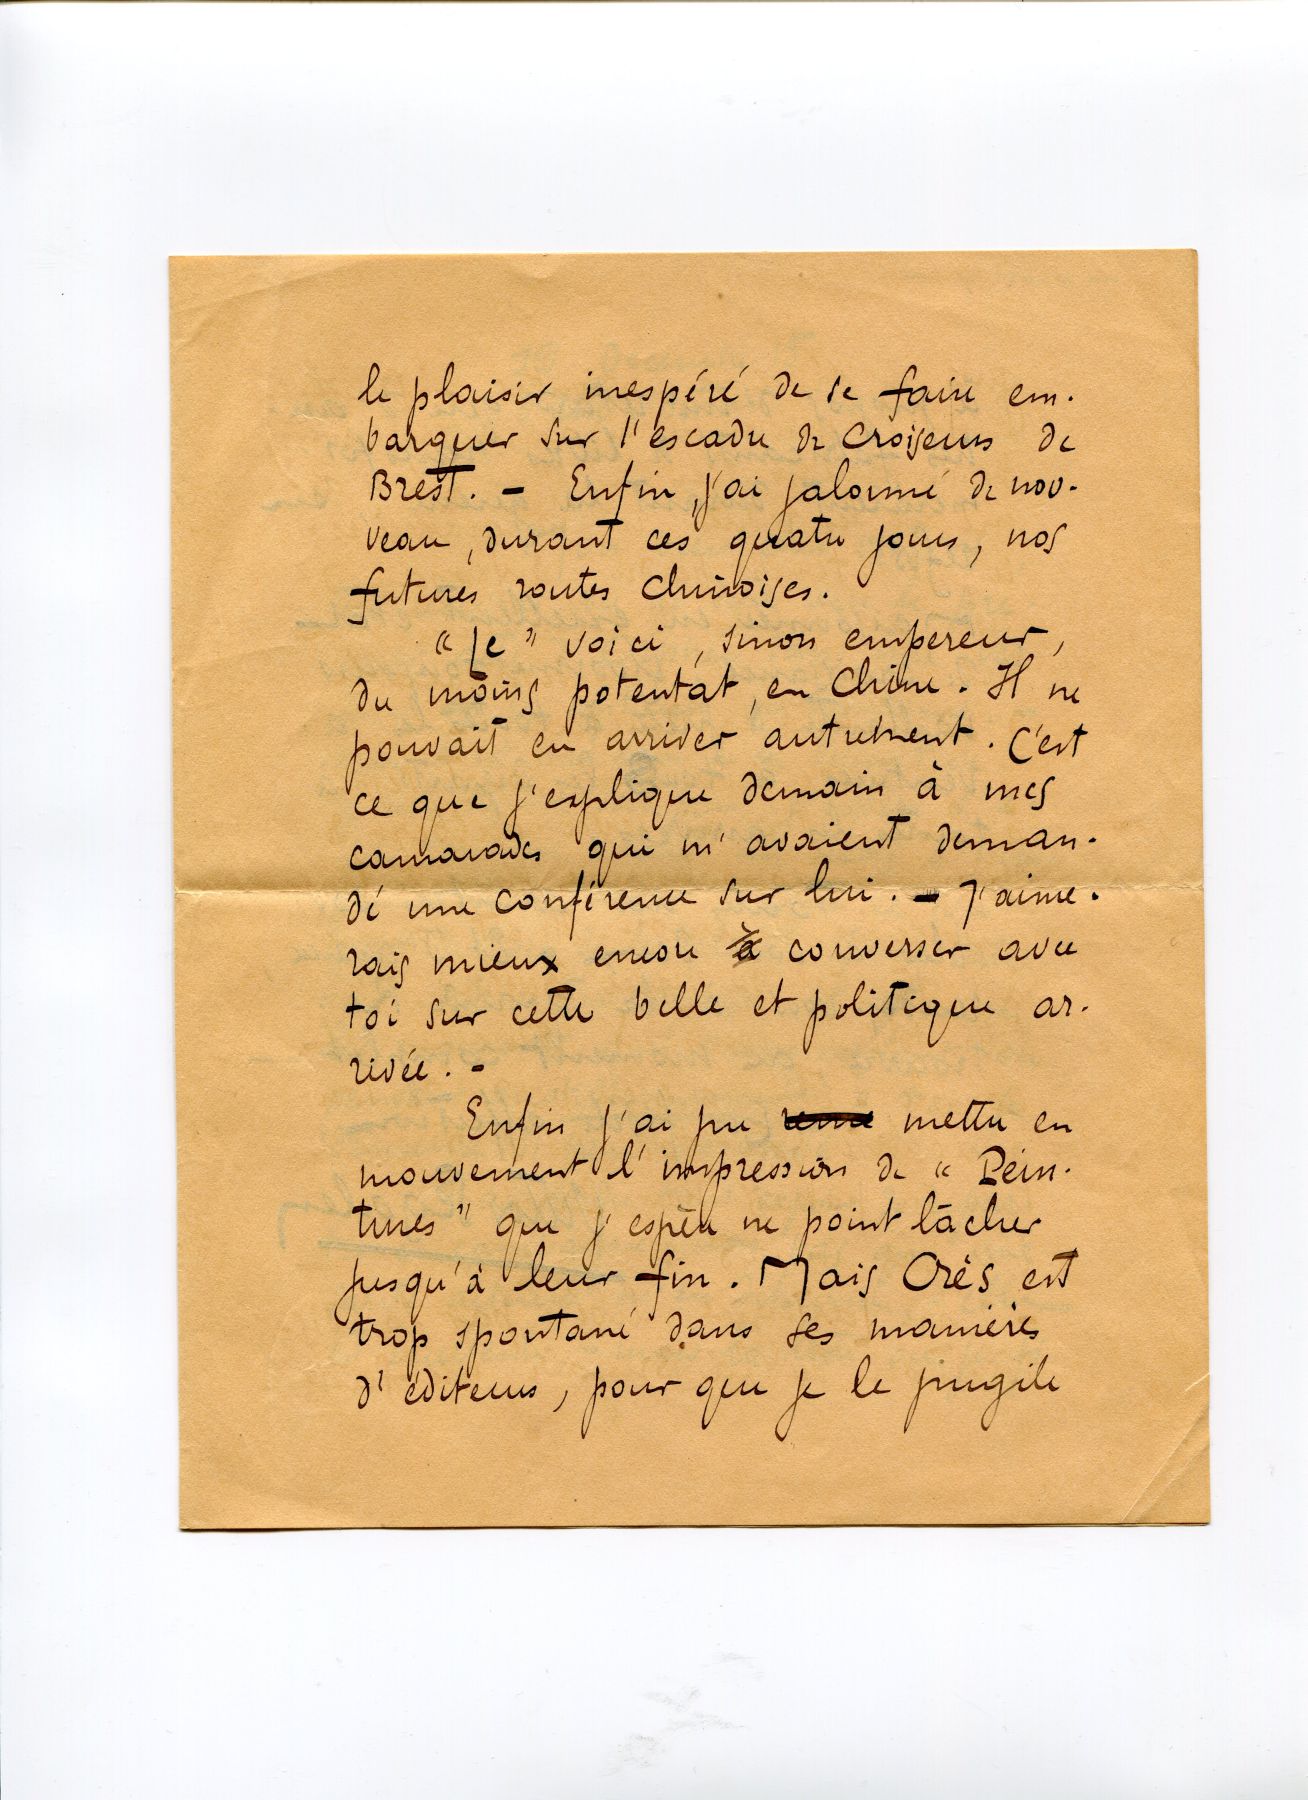 le plaisir inespéré de se faire em-
barquer sur l'escadre de croiseurs de
Brest. - Enfin, j'ai jalonné de nou-
veau, durant ces quatre jours, nos
futures routes chinoises.
"Je" voici, sinon empereur,
du moins potentat, en Chine. Il ne
pouvait en arriver autrement. C'est
ce que j'explique demain à mes
camarades qui m'avaient deman-
dé une conférence sur lui. - J'aime-
rais mieux encore à converser avec
toi sur cette belle et politique ar-
rivée. -
Enfin j'ai pu mettre en
mouvement l'impression de "Pein-
tures" que j'espère ne point lâcher
jusqu'à leur fin. Mais Crès est
trop spontané dans ses manières
d'éditeurs, pour que je le